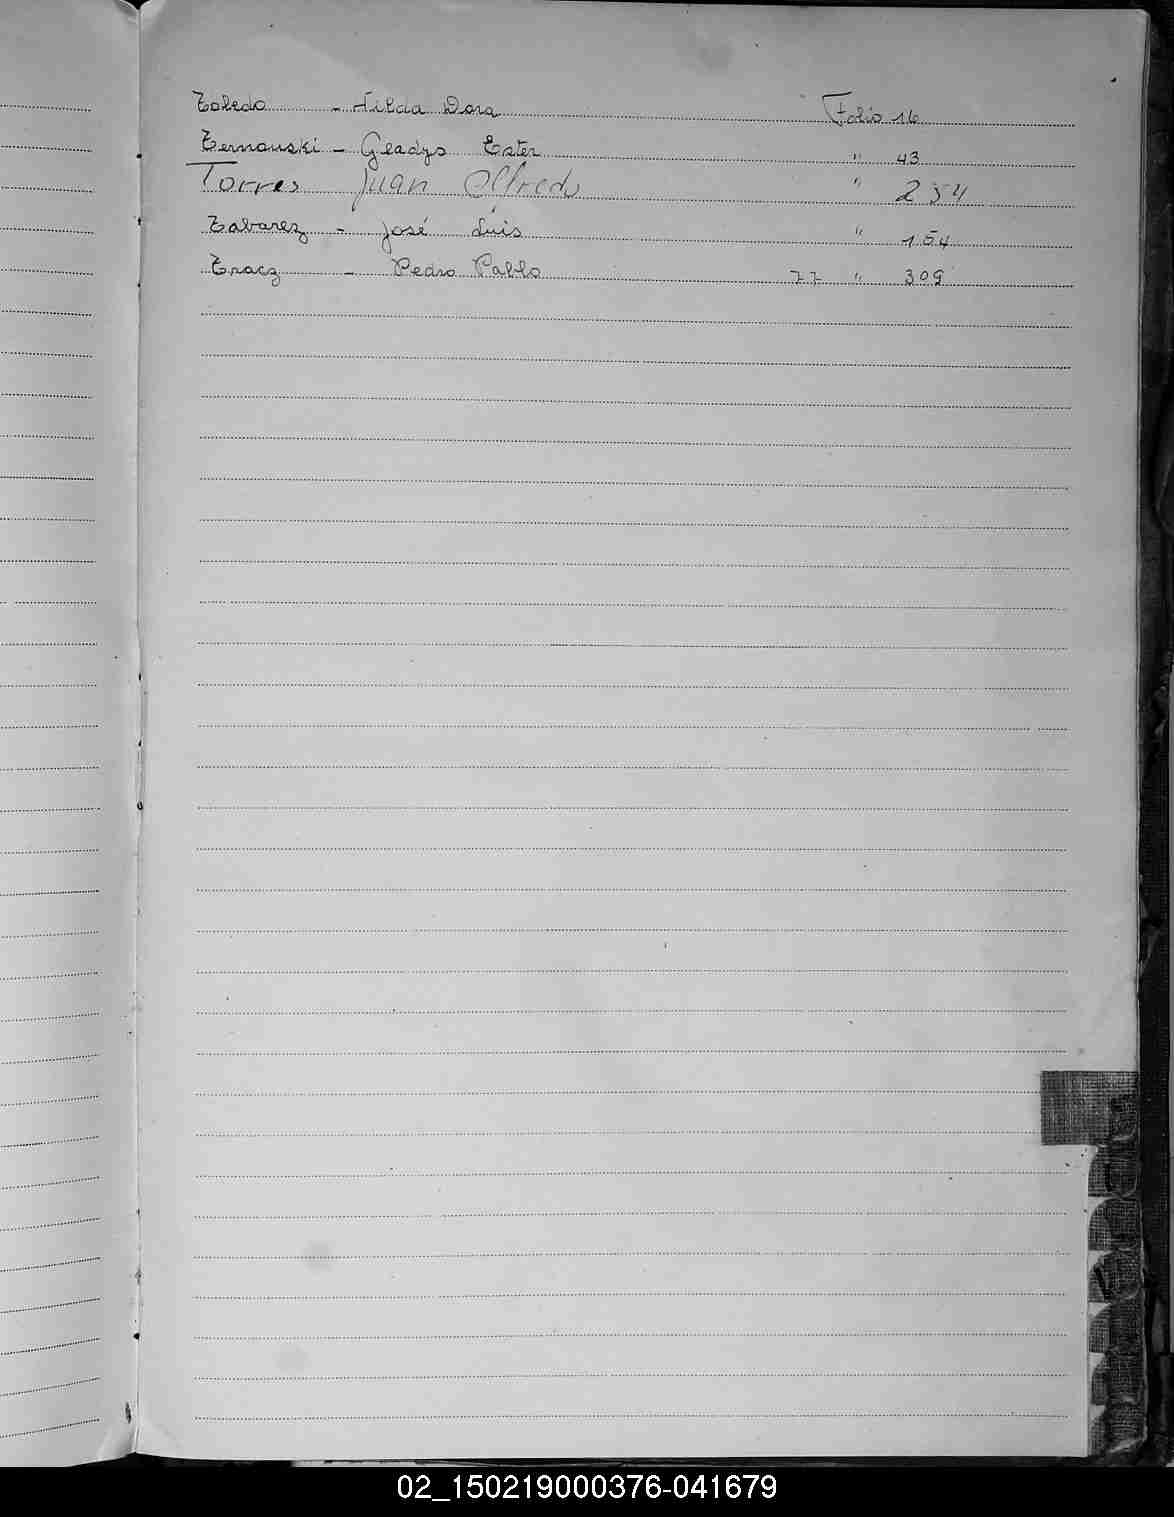 Toledo - Hilda Dora Folio 16
Ternouski - Gladys Ester " 43
Torres Juan Alfredo " 254
Tabarez - José Luis " 154
Tracz - Pedro Pablo 77 " 309
02_150219000376-041679